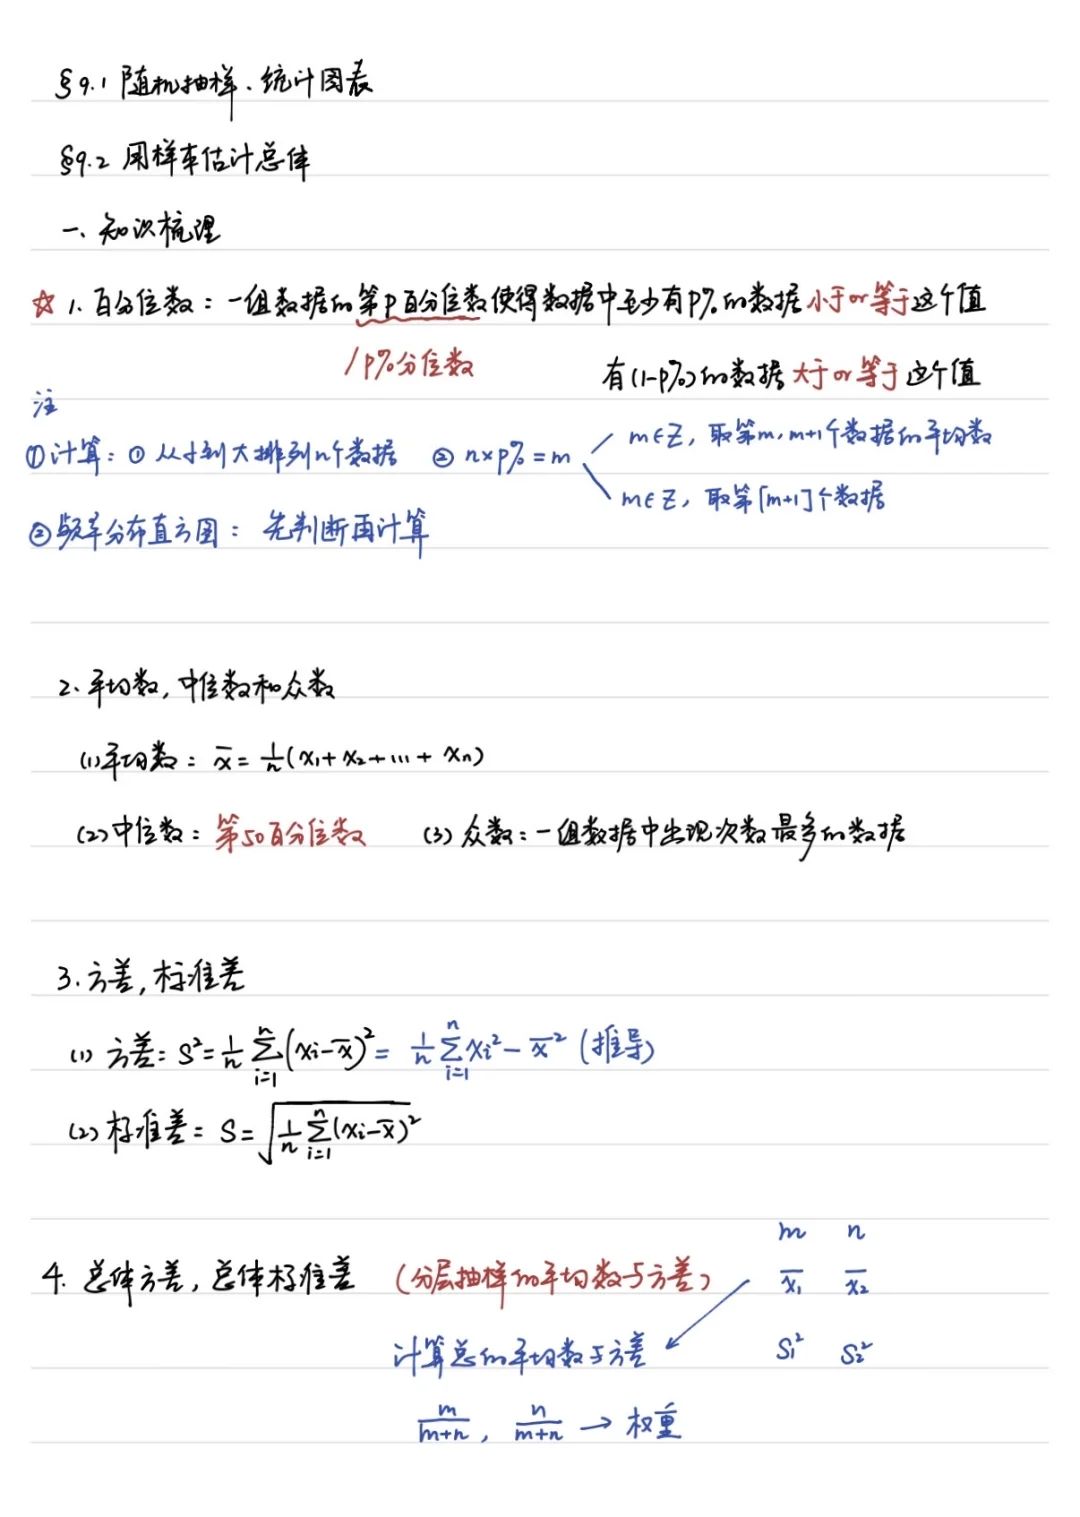 §9.1 随机抽样、统计图表
§9.2 用样本估计总体
一、知识梳理
☆ 1. 百分位数：一组数据的第p百分位数使得数据中至少有p%的数据小于or等于这个值
/p%分位数 有(1-p%)的数据大于or等于这个值
注
①计算：① 从小到大排列n个数据 ② n×p%=m
m∈Z，取第m，m+1个数据的平均数
m∈Z，取第[m+1]个数据
②频率分布直方图：先判断再计算
2. 平均数，中位数和众数
(1)平均数：x̄ = 1/n(x₁+x₂+…+xₙ)
(2)中位数：第50百分位数 (3)众数：一组数据中出现次数最多的数据
3. 方差，标准差
(1) 方差：S²=1/n ∑ⁿᵢ₌₁(xᵢ-x̄)² = 1/n ∑ⁿᵢ₌₁xᵢ² - x̄² (推导)
(2) 标准差：S=√(1/n ∑ⁿᵢ₌₁(xᵢ-x̄)²)
m n
4. 总体方差，总体标准差 (分层抽样的平均数与方差) x̄₁ x̄₂
计算总的平均数与方差 S₁² S₂²
m/(m+n)，n/(m+n) → 权重